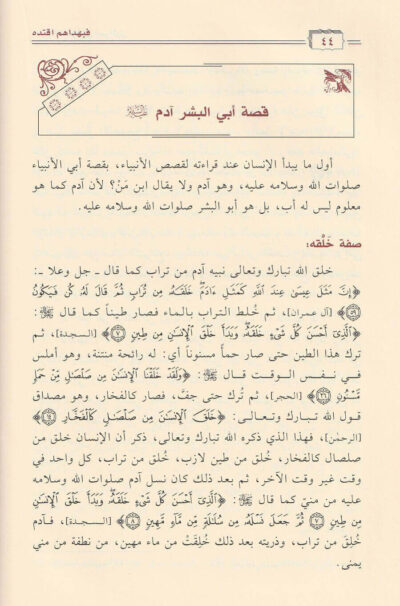 ٤٤
فبهداهم اقتده
قصة أبي البشر آدم ﷺ
أول ما يبدأ الإنسان عند قراءته لقصص الأنبياء، بقصة أبي الأنبياء
صلوات الله وسلامه عليه، وهو آدم ولا يقال ابن مَنْ؟ لأن آدم كما هو
معلوم ليس له أب، بل هو أبو البشر صلوات الله وسلامه عليه.
صفة خَلْقه:
خلق الله تبارك وتعالى نبيه آدم من تراب كما قال ـ جل وعلا ـ:
﴿إِنَّ مَثَلَ عِيسَىٰ عِندَ ٱللَّهِ كَمَثَلِ ءَادَمَ خَلَقَهُۥ مِن تُرَابٍ ثُمَّ قَالَ لَهُۥ كُن فَيَكُونُ
﴿٥٩﴾ [آل عمران]، ثم خُلط التراب بالماء فصار طيناً كما قال ﷻ:
﴿ٱلَّذِىٓ أَحْسَنَ كُلَّ شَىْءٍ خَلَقَهُۥ وَبَدَأَ خَلْقَ ٱلْإِنسَٰنِ مِن طِينٍ ﴿٧﴾ [السجدة]، ثم
ترك هذا الطين حتى صار حمأً مسنوناً أي: له رائحة منتنة، وهو أملس
في نفس الوقت قال ﷻ: ﴿وَلَقَدْ خَلَقْنَا ٱلْإِنسَٰنَ مِن صَلْصَٰلٍ مِّنْ حَمَإٍ
مَّسْنُونٍ ﴿٢٦﴾ [الحجر]، ثم تُرك حتى جفَّ، فصار كالفخار، وهو مصداق
قول الله تبارك وتعالى: ﴿خَلَقَ ٱلْإِنسَٰنَ مِن صَلْصَٰلٍ كَٱلْفَخَّارِ ﴿١٤﴾
[الرحمٰن]، فهذا الذي ذكره الله تبارك وتعالى، ذكر أن الإنسان خلق من
صلصال كالفخار، خُلق من طين لازب، خُلق من تراب، كل واحد في
وقت غير وقت الآخر، ثم بعد ذلك كان نسل آدم صلوات الله وسلامه
عليه من منيّ كما قال ﷻ: ﴿ٱلَّذِىٓ أَحْسَنَ كُلَّ شَىْءٍ خَلَقَهُۥ وَبَدَأَ خَلْقَ ٱلْإِنسَٰنِ
مِن طِينٍ ﴿٧﴾ ثُمَّ جَعَلَ نَسْلَهُۥ مِن سُلَٰلَةٍ مِّن مَّآءٍ مَّهِينٍ ﴿٨﴾ [السجدة]، فآدم
خُلِقَ من تراب، وذريته بعد ذلك خُلِقَتْ من ماء مهين، من نطفة من مني
يمنى.